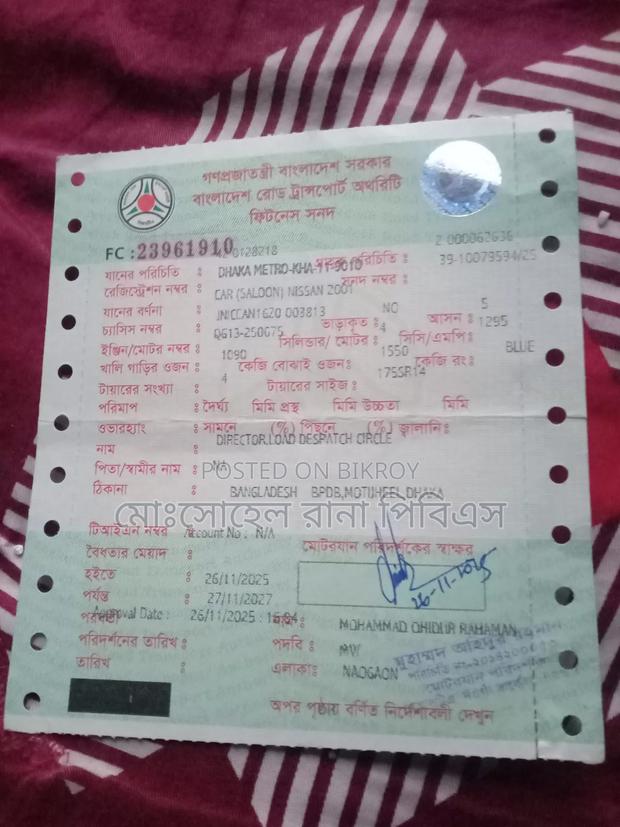 গণপ্রজাতন্ত্রী বাংলাদেশ সরকার
বাংলাদেশ রোড ট্রান্সপোর্ট অথরিটি
ফিটনেস সনদ
FC : 23961910
0128218
2 000062636
যানের পরিচিতি : DHAKA METRO-KHA-11-9010 পরিচিতি : 39-10079594/25
রেজিস্ট্রেশন নম্বর : CAR (SALOON) NISSAN 2001 সনদ নম্বর :
যানের বর্ণনা : NO 5
চ্যাসিস নম্বর : JNICCAN16Z0 003813 ভাড়াকৃত : 4 আসন : 1295
ইঞ্জিন/মোটর নম্বর : QG13-250675 সিলিন্ডার/ মোটর : সিসি/এমপি:
খালি গাড়ির ওজন : 1090 কেজি বোঝাই ওজন: 1550 কেজি রং: BLUE
টায়ারের সংখ্যা : 4 টায়ারের সাইজ : 175SR14
পরিমাপ : দৈর্ঘ্য মিমি প্রস্থ মিমি উচ্চতা মিমি
ওভারহ্যাং : সামনে (%) পিছনে (%) জ্বালানি:
নাম : DIRECTOR,LOAD DESPATCH CIRCLE
পিতা/স্বামীর নাম : NA
POSTED ON BIKROY
ঠিকানা : BANGLADESH BPDB,MOTIJHEEL,DHAKA
মোঃসোহেল রানা পিবিএস
টিআইএন নম্বর Account No : N/A
মোটরযান পরিদর্শকের স্বাক্ষর
বৈধতার মেয়াদ :
হইতে : 26/11/2025
পর্যন্ত : 27/11/2027
26-11-2025
Approval Date : 26/11/2025 :
MOHAMMAD OHIDUR RAHAMAN
পরিদর্শনের তারিখ : পদবি : MV
তারিখ : এলাকা: NAOGAON
অপর পৃষ্ঠায় বর্ণিত নির্দেশাবলী দেখুন